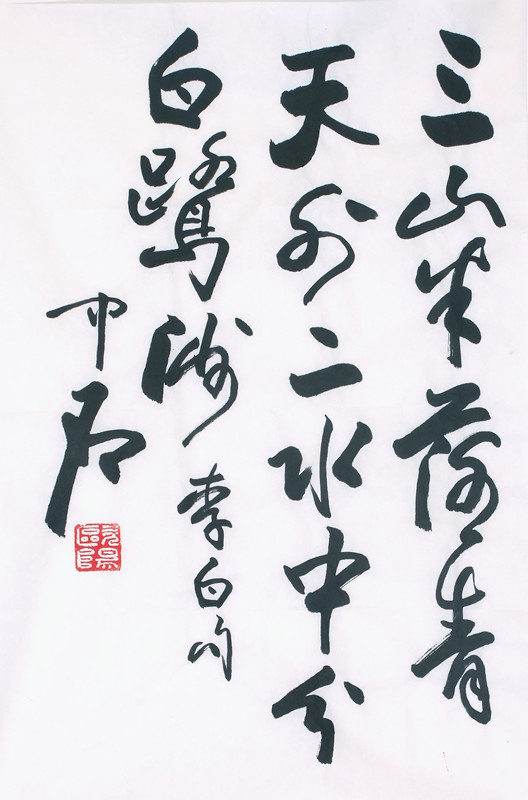 三山半落青
天外二水中分
白鹭洲 李白句
中石